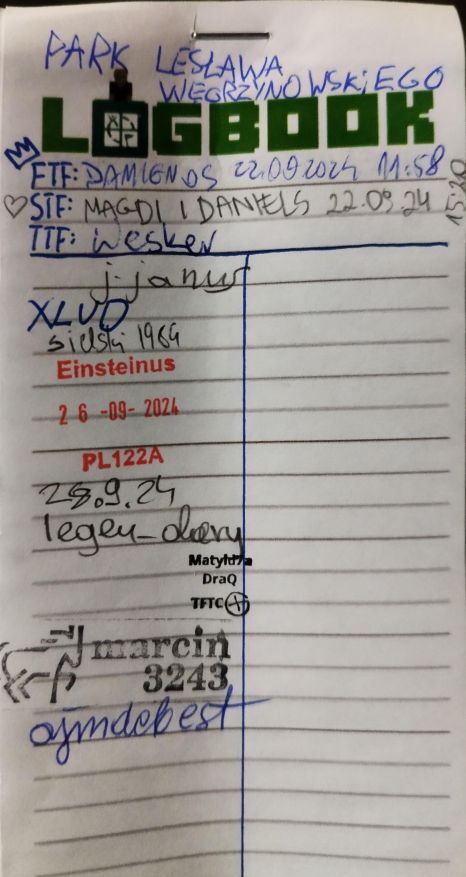 PARK LESŁAWA
WĘGRZYNOWSKiEGO
LOGBOOK
FTF: DAMIENOS 22.09.2024 11:58
STF: MAGDI I DANIELS 22.09.24 15:20
TTF: Wesker
j-janus
XLVO
sielski 1964
Einsteinus
26-09-2024
PL122A
28.9.24
legen_dary
Matyld7a
DraQ
TFTC
marcin
3243
ojmdebest